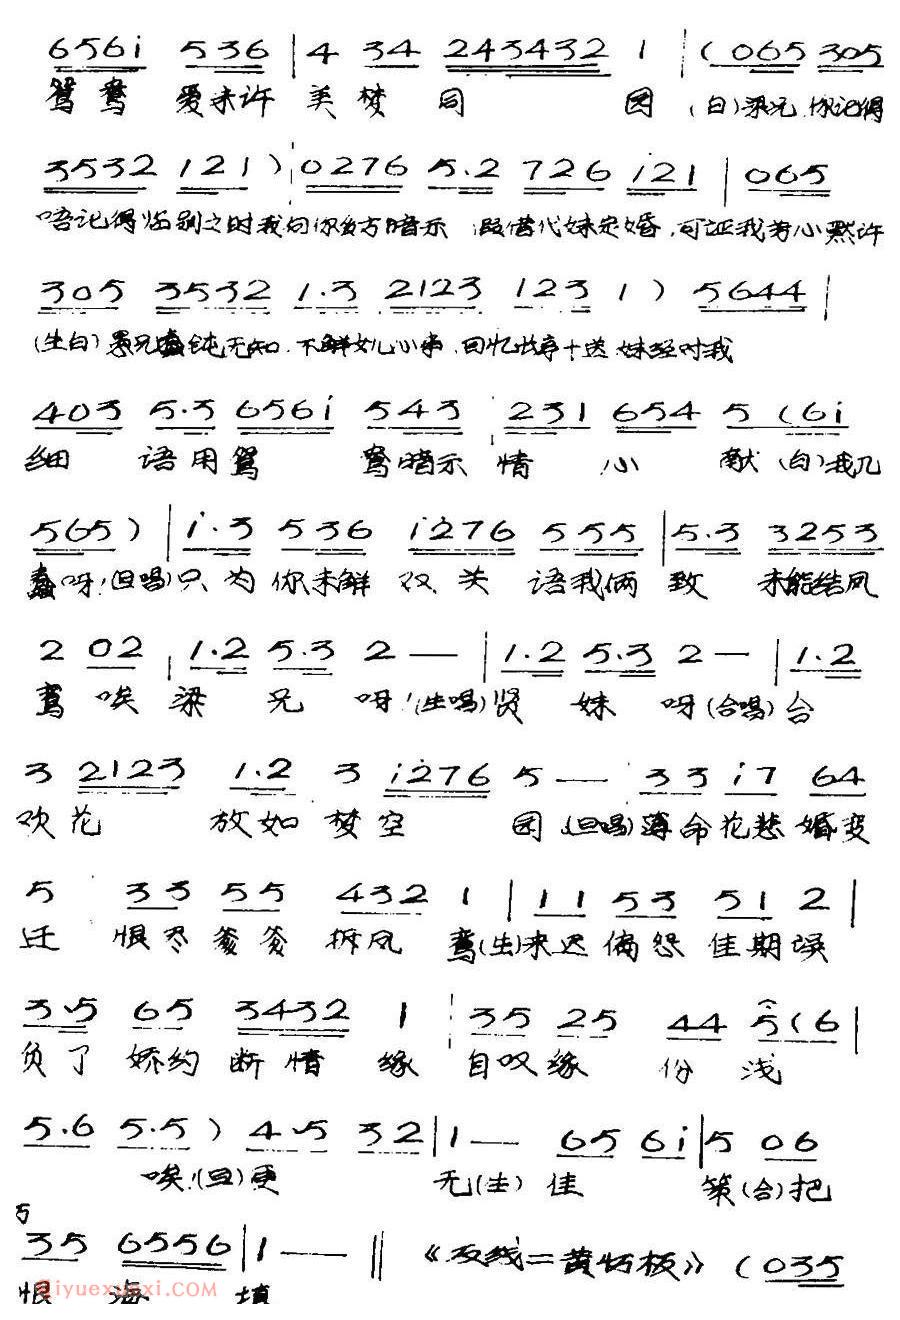 656i 536 | 4 34 243432 1 | (065 305
鸳鸯 爱未许 美梦 同 圆 (白)梁兄 你记得
3532 121) 0276 5.2 726 i21 | 065
唔记得临别之时我向你多方暗示 假借代妹定婚，可证我芳心默许
305 3532 1.3 2123 123 1) 5644 |
(生白)愚兄蠢钝无知，不解妙儿心事，回忆长亭十送 妹经对我
403 5.5 656i 543 231 654 5 (6i
细 语用鸳 鸯暗示情 心 献 (白)我几
565) | i.3 536 i276 555 | 5.3 3253
蠢呀！(旦唱)只为你未解 双 关 语我俩 致 未能结凤
2 02 1.2 5.3 2 — | 1.2 5.3 2 — | 1.2
鸾 唉 梁 兄 呀！(生唱)贤 妹 呀(合唱)合
3 2123 1.2 3 i276 5 — 33 i7 64
欢花 放如 梦空 园 (旦唱)薄命花悲 婚变
5 33 55 432 1 | 11 53 51 2 |
迁 恨尽爹爹拆凤 鸾(生)来迟偏怨佳期误
3.5 65 3432 1 35 25 44 5(6 |
负了 娇约断情 缘 自叹缘 份 浅
5.6 5.5) 4.5 32 | 1 — 65 6i | 5 06
唉！(旦)更 无(生)佳 策(合)把
5
35 6556 | 1 — — ‖ 《反线二黄慢板》 (035
恨 海 填